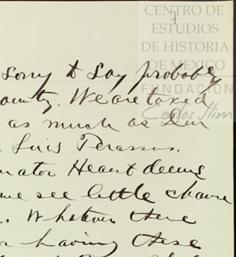 7
CENTRO DE
ESTUDIOS
DE HISTORIA
DE MEXICO
FUNDACIÓN
Carlos Slim
sorry to say probably
county. We are taxed
as much as Don
Luis Terassus.
nator Hearst deems
we see little chance
Whatever there
or having these